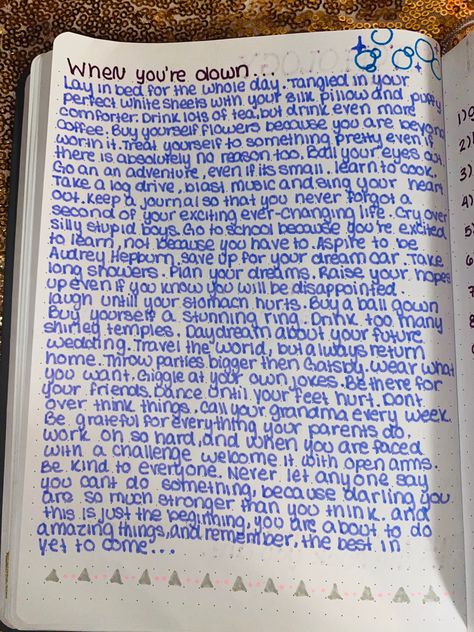 When you're down...
Lay in bed for the whole day. Tangled in your
perfect white sheets with your silk pillow and puffy
comforter. Drink lots of tea, but drink even more
coffee. Buy yourself flowers because you are beyond
worth it. Treat yourself to something pretty even if
there is absolutely no reason too. Ball your eyes out.
Go an an adventure, even if its small. learn to cook.
Take a log drive, blast music and sing your heart
out. Keep a journal so that you never forgot a
second of your exciting ever-changing life. Cry over
Silly stupid boys. Go to school because you're excited
to learn, not because you have to. Aspire to be
Audrey Hepburn, save up for your dream car. Take
long showers. Plan your dreams. Raise your hopes
up even if you know you will be disappointed.
laugh untill your stomach hurts. Buy a ball gown
Buy yourself a stunning ring. Drink too many
shirled temples. Daydream about your future
wedding. Travel the world, but always return
home. Throw parties bigger then Gatsby. wear what
you want. Giggle at your own jokes. Be there for
your friends. Dance until your feet hurt. Dont
over think things. call your grandma every week.
Be grateful for everything your parents do,
work oh so hard, and when you are faced
with a challenge welcome it with open arms.
Be kind to everyone. Never let anyone say
you cant do something, because darling you
are so much stronger than you think. and
this is just the beginning, you are about to do
amazing things, and remember, the best in
yet to come...
1)
2)
3)
4)
5)
6